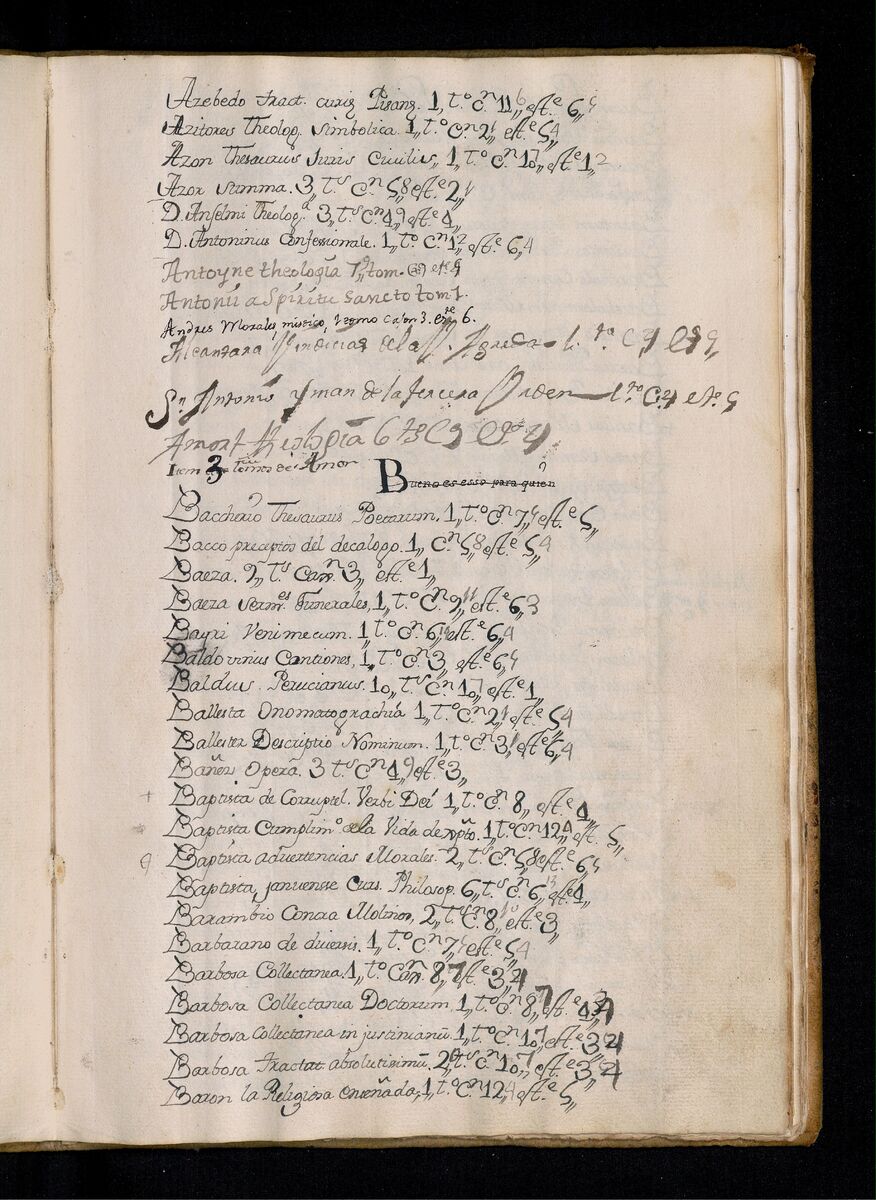 Azebedo tract. curię Pisanę. 1,, t.º C.ⁿ 11,, 6 est.e 6,, 4
Azitores Theolog. simbolica. 1,, t.º C.ⁿ 2,, est.e 5,, 4
Azon Thesaurus Juris Civilis,, 1,, t.º C.ⁿ 10,, 7 est.e 1,, 2
Azor summa. 3,, t.s C.ⁿ 5,, 8 est.e 2,,
D. Anselmi Theolog.a 3,, t.s C.ⁿ 4,, 9 est.e 4,,
D. Antoninus Confessionale. 1,, t.º C.ⁿ 12 est.e 6,, 4
Antoyne theologia 7 tom.
Antonii a Spiritu sancto tom 1.
Andres Morales, mistico, 1 tomo cajon 3. este 6.
Alcantara Vindicias de la Agreda 1. to C 4
Sn Antonio y man de la tercera Orden 1. to C. 4 est. 5
Amort theologia 6 ts C
Item 3 tomos del Amor
B ueno es esso para quien
Baccherio Thesaurus Poetarum. 1,, t.º C.ⁿ 7,, 4 est.e 5,,
Bacco preceptos del decalogo. 1,, C.ⁿ 5,, 8 est.e 5,, 4
Baeza. 2,, t.s Can. 3,, est.e 1,,
Baeza serm.es Funerales, 1,, t.º C.ⁿ 2,, 11 est.e 6,, 3
Bayri Venimecum. 1,, t.º C.ⁿ 6,, est.e 6,, 4
Baldovinus Cantiones, 1,, t.º C.ⁿ 3,, est.e 6,, 4
Baldus. Perucianus. 10,, t.s C.ⁿ 10,, 7 est.e 1,,
Ballesta Onomatograchia 1,, t.º C.ⁿ 2,, est.e 5,, 4
Ballester Descriptio Nominum. 1,, t.º C.ⁿ 3,, est.e 6,, 4
Bañes Opera. 3 t.s C.ⁿ 4,, 9 est.e 3,,
Baptista de Corruptel. Verbi Dei 1,, t.º C.ⁿ 8,, est.e 4,,
Baptista Cumplim.º de la Vida de xpto. 1,, t.º C.ⁿ 12,, 4 est.e 5,,
Baptista advertencias Morales. 2,, t.s C.ⁿ 5,, 8 est.e 6,, 4
Baptista, januense Curs. Philosop. 6,, t.s C.ⁿ 6,, 13 est.e 4,,
Barambio Contra Molinos, 2,, t.s C.ⁿ 8,, est.e 3,,
Barbarano de diversis. 1,, t.º C.ⁿ 7,, 4 est.e 5,, 4
Barbosa Collectanea. 1,, t.º Can. 8,, 7 est.e 3,, 4
Barbosa Collectanea Doctorum. 1,, t.º C.ⁿ 8,, 7 est.e 4
Barbosa Collectanea in justinianũ. 1,, t.º C.ⁿ 10,, 7 est.e 3,, 4
Barbosa tractat. absolutissimũ. 2,, t.s C.ⁿ 10,, 7 est.e 3,, 4
Baron la Religiosa enseñada, 1,, t.º C.ⁿ 12,, 4 est.e 5,,